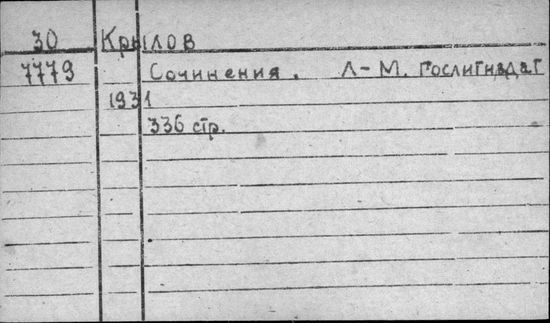 30 Крылов
7779 Сочинения. Л-М. Гослитиздат
1931
336 стр.